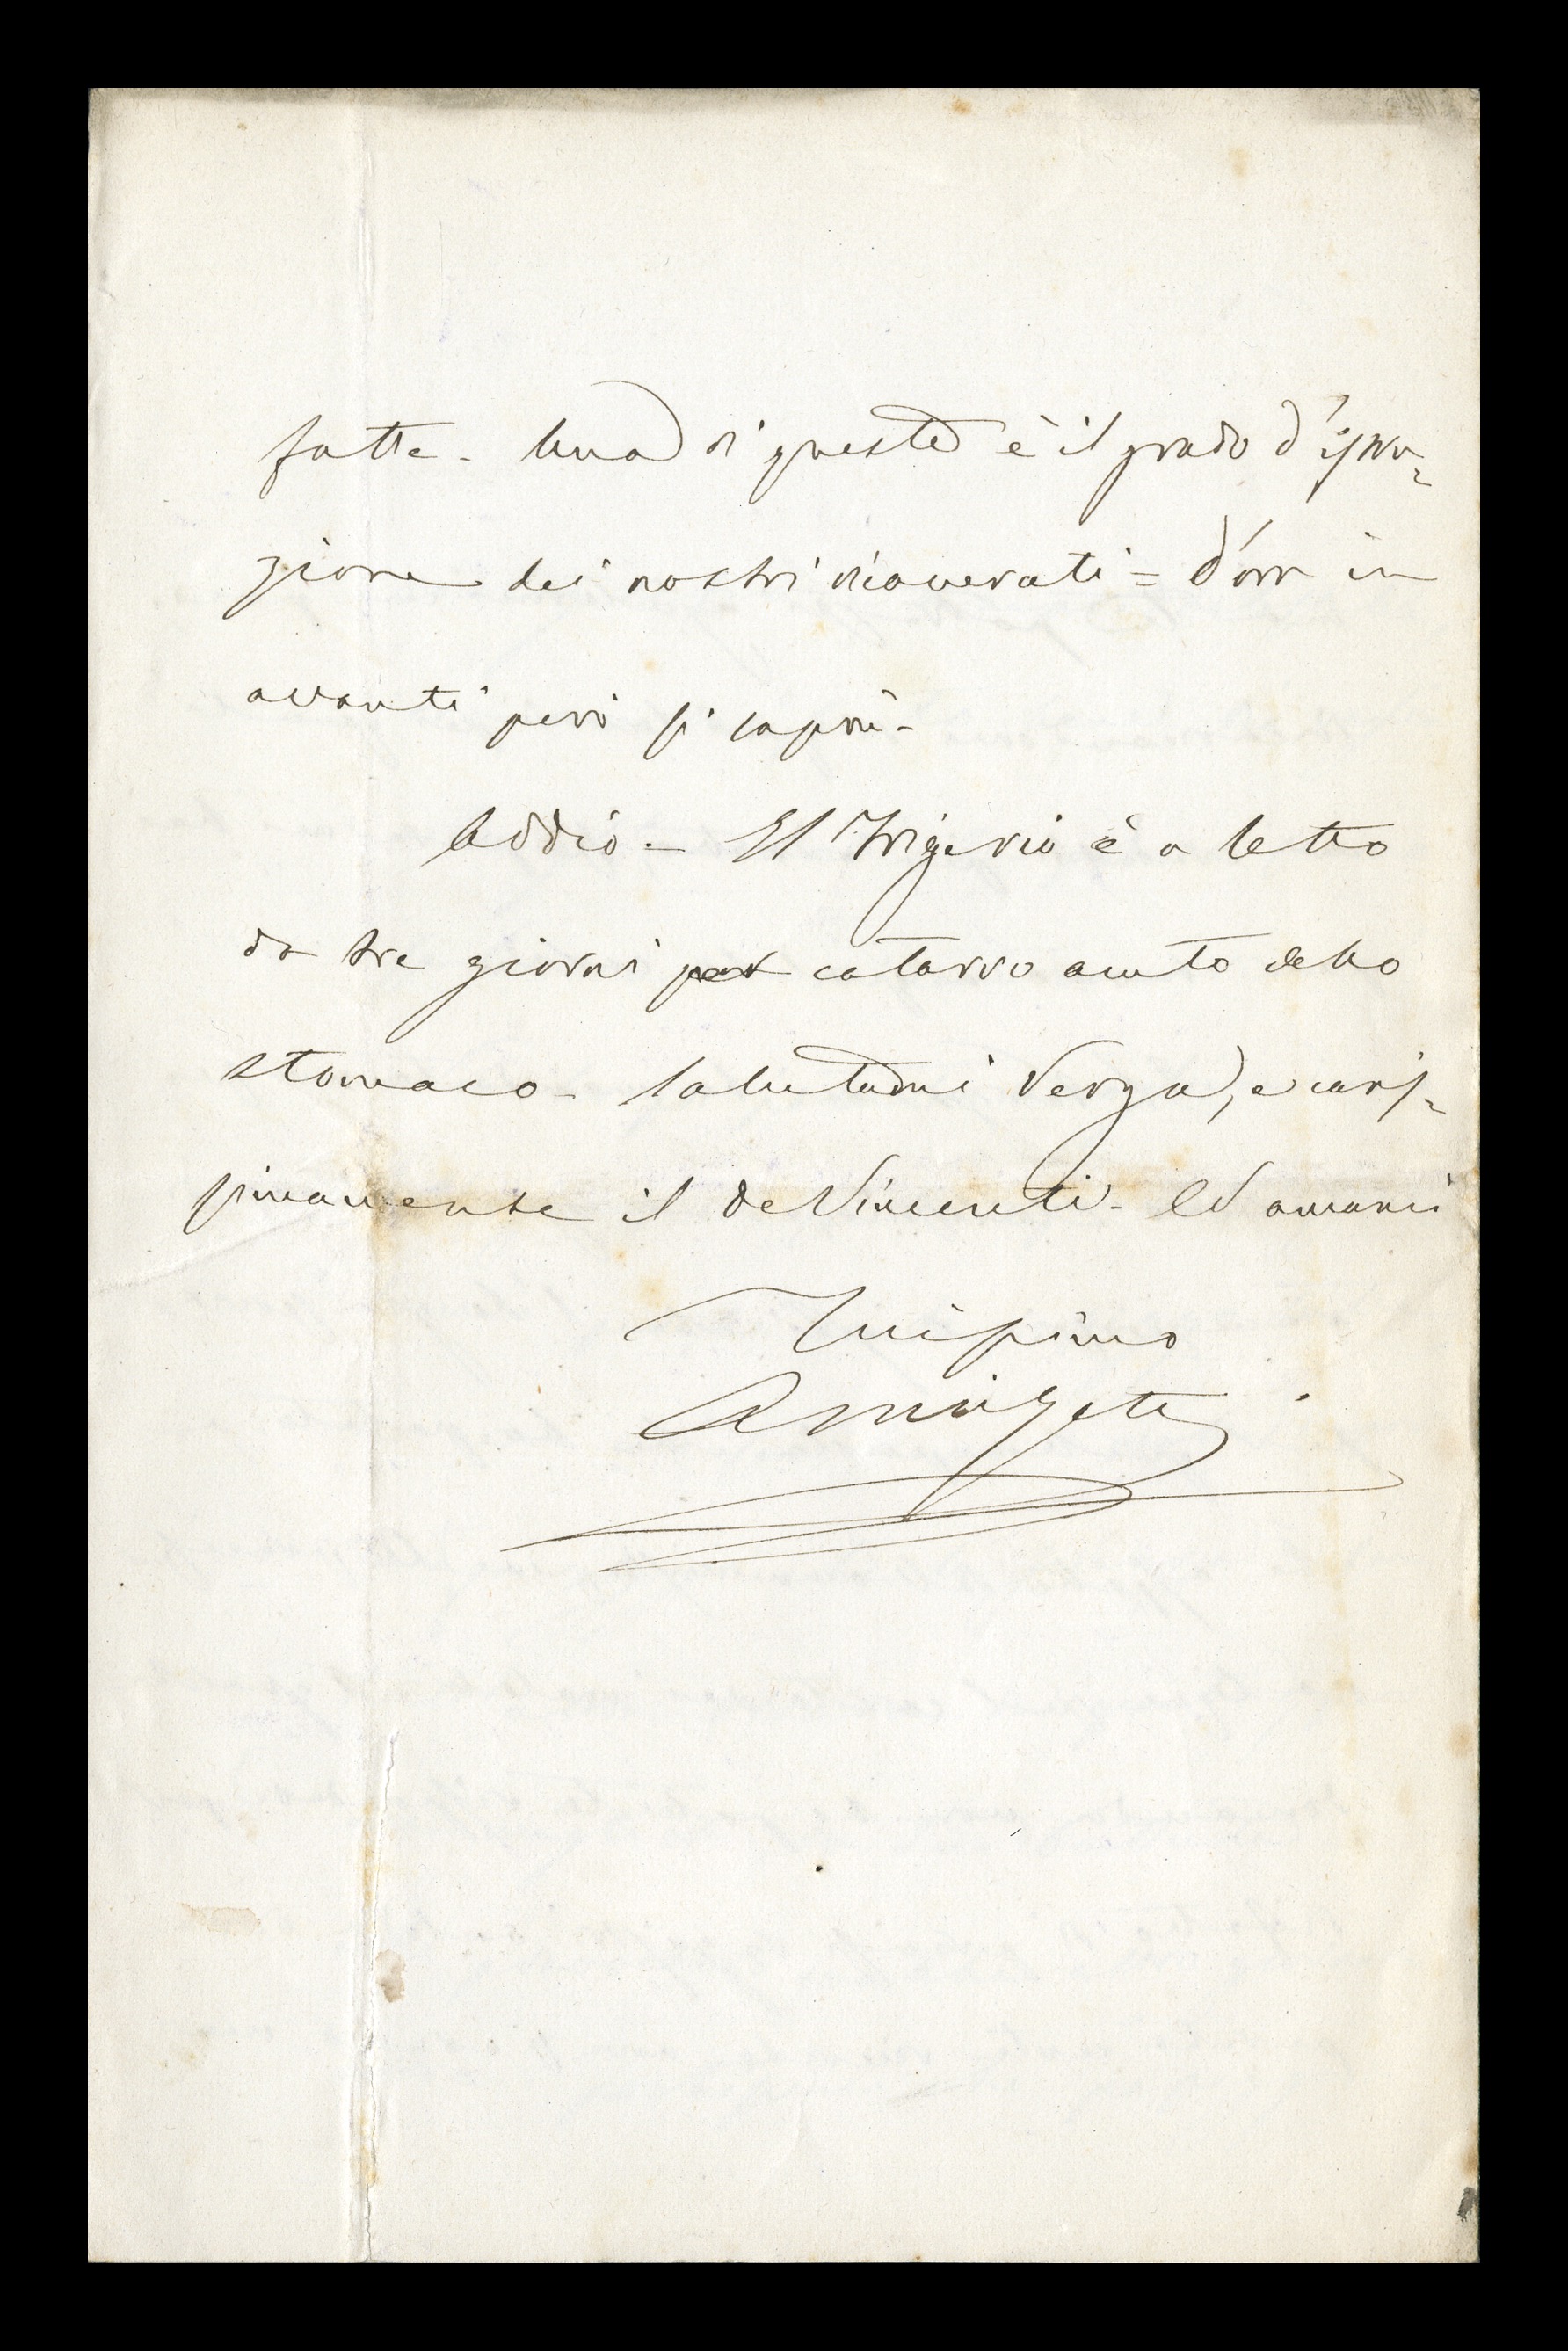 fatte - Una di queste è il grado d'istru-
zione dei nostri ricoverati = D'ora in
avanti però si saprà -
Addio - Il Frigerio è a letto
da tre giorni per catarro acuto dello
stomaco - Salutami Verga, e caris-
simamente il De Vincenti - Ed amami
Tuissimo